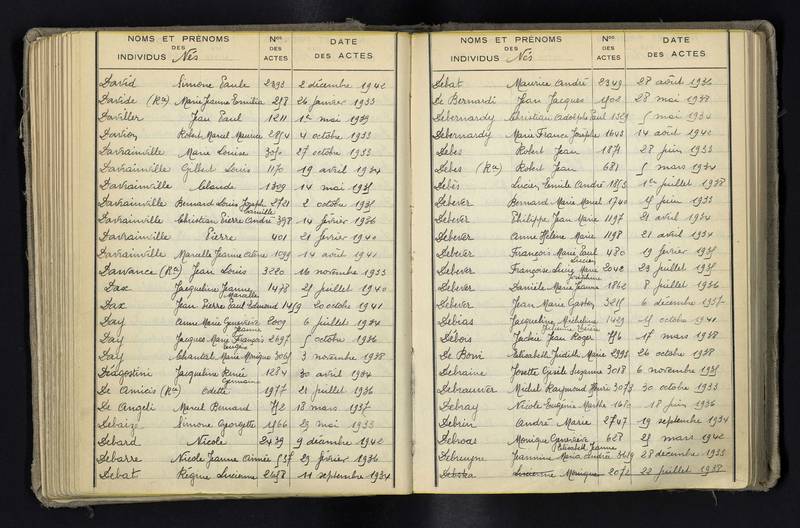 NOMS ET PRÉNOMS DES INDIVIDUS Nés
Nos DES ACTES
DATE DES ACTES
David Simone Paule 2 décembre 1942
Davide (Ra) Marie Jeanne Emilia 258 26 janvier 1933
Daviller Jean Paul 1211 mai 1939
Robert Marcel Maurice 4 octobre 1933
Davrainville Marie Louise 27 octobre 1933
Davrainville Gilbert Louis 1170 19 avril 1934
Davrainville Claude 1309 14 mai 1935
Davrainville Bernard Louis Joseph Camille 2721 2 octobre 1935
Davrainville Christian Pierre André 398 14 février 1936
Davrainville Pierre 401 21 février 1940
Davrainville Marcelle Jeanne 14 août 1941
(Ra) Jean Louis 3220 16 novembre 1933
Dax Jacqueline Jeanne Marcelle 1478 21 juillet 1940
Dax Jean Pierre Paul Edmond 20 octobre 1941
Day Anne Marie Geneviève Jeanne 2009 6 juillet 1934
Day Jacques Marie François Eugène 2697 5 octobre 1936
Day Chantal Marie Monique 3 novembre 1938
Déagostini Jacqueline Renée Germaine 1284 30 avril 1934
De Amicis (Ra) Odette 1977 21 juillet 1936
De Angeli Marcel Bernard 752 18 mars 1937
Debaize Simone Georgette 1566 29 mai 1933
Debard Nicole 2439 9 décembre 1942
Debarre Nicole Jeanne Aimée 537 29 février 1936
Debat Régine Lucienne 11 septembre 1934
NOMS ET PRÉNOMS DES INDIVIDUS Nés
Nos DES ACTES
DATE DES ACTES
Debat Maurice André 2349 28 août 1936
De Bernardi Jean Jacques 1502 28 mai 1938
Debernardy Christian Adolphe Paul 1329 5 mai 1934
Debernardy Marie France Josèphe 1643 14 août 1942
Debes Robert Jean 1871 28 juin 1933
Debes (Ra) Robert Jean 681 5 mars 1934
Debès Lucien Emile André 1853 1er juillet 1938
Debever Bernard Marie Marcel 1740 15 juin 1933
Debever Philippe Jean Marie 1197 21 avril 1934
Debever Anne Hélène Marie 1198 21 avril 1934
Debever François Marie Paul Lucien 480 19 février 1935
Debever Françoise Marie Joséphine 2042 23 juillet 1935
Debever Danièle Marie Jeanne 1862 8 juillet 1936
Debever Jean Marie Gaston 6 décembre 1937
Debias Jacqueline Micheline 1429 15 octobre 1941
Debois Jackie Jean Roger 756 17 mars 1938
De Boni Elisabeth Judith Marie 2995 26 octobre 1938
Debraine Josette Cécile Suzanne 3018 6 novembre 1935
Debrauwer Michel Raymond Henri 3073 30 octobre 1933
Debray Nicole Eugénie Marthe 18 juin 1936
Debrun André Marie 2747 19 septembre 1934
Debroas Monique Geneviève 608 25 mars 1942
Debruyne Jeannine Maria Andrée Elisabeth Jeanne 3619 28 décembre 1933
Monique 2072 22 juillet 1938